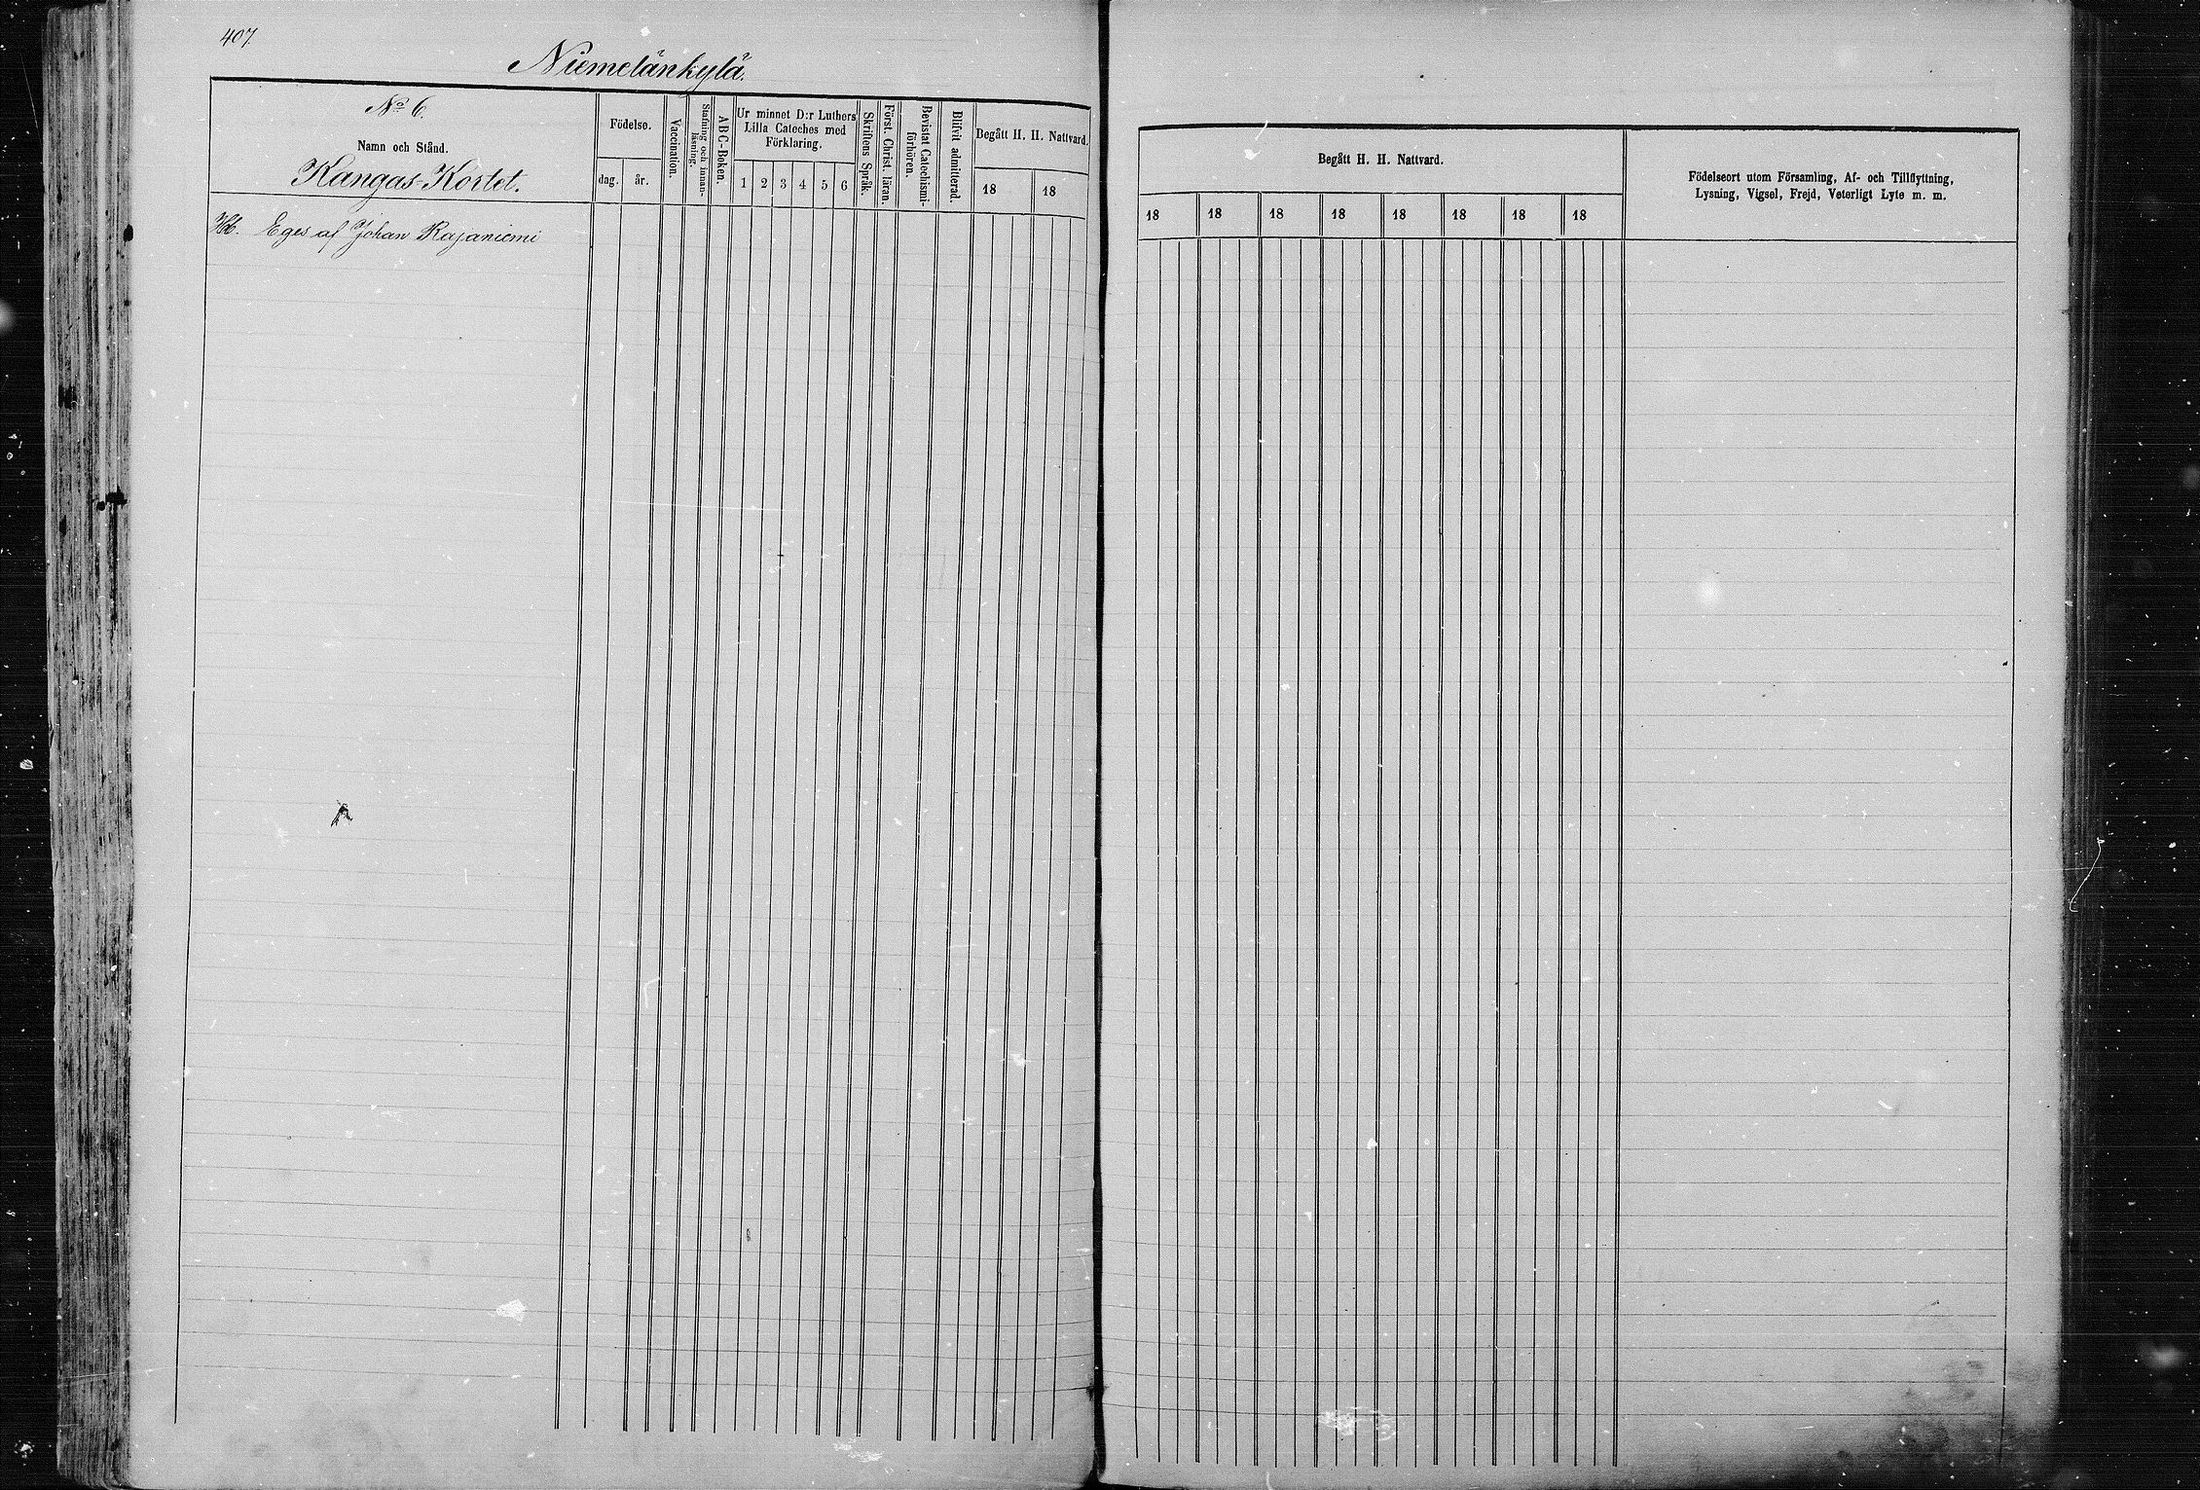 407.
Niemelänkylä.
No 6.
Namn och Stånd.
Kangas-Kortet.
Födelse.
dag. år.
Vaccination.
Stafning och innan-
läsning.
ABC-Boken.
Ur minnet D:r Luthers
Lilla Cateches med
Förklaring.
1 2 3 4 5 6
Skriftens Språk.
Först. Christ. läran.
Bevistat Catechismi-
förhören.
Blifvit admitterad.
Begått H. H. Nattvard.
18 18
Eges af Johan Rajaniemi
Begått H. H. Nattvard.
18 18 18 18 18 18 18 18
Födelseort utom Församling, Af- och Tillflyttning,
Lysning, Vigsel, Frejd, Veterligt Lyte m. m.